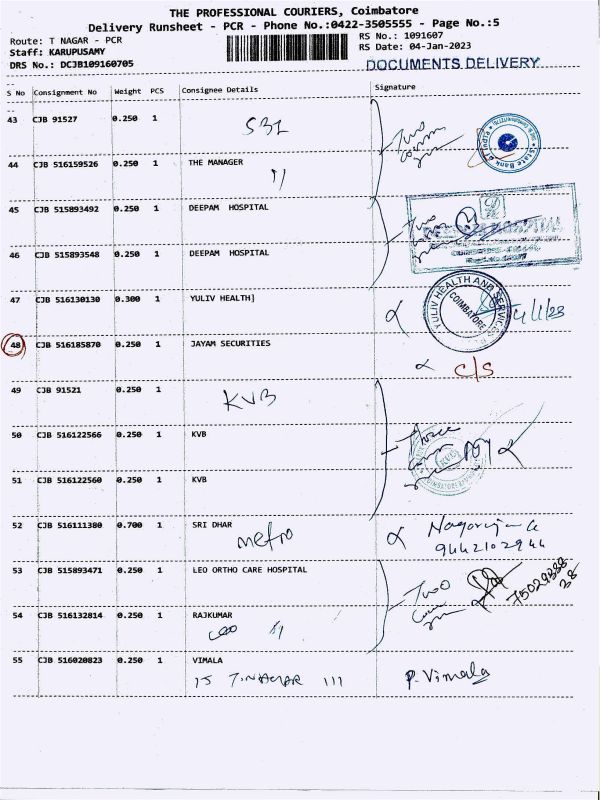 THE PROFESSIONAL COURIERS, Coimbatore
Delivery Runsheet - PCR - Phone No.:0422-3505555 - Page No.:5
Route: T NAGAR - PCR
RS No.: 1091607
Staff: KARUPUSAMY
RS Date: 04-Jan-2023
DRS No.: DCJB109160705
DOCUMENTS DELIVERY
S No Consignment No Weight PCS Consignee Details Signature
43 CJB 91527 0.250 1 SBI
Two
State Bank of India
44 CJB 516159526 0.250 1 THE MANAGER
45 CJB 515893492 0.250 1 DEEPAM HOSPITAL
Two
46 CJB 515893548 0.250 1 DEEPAM HOSPITAL
47 CJB 516130130 0.300 1 YULIV HEALTH]
YULIV HEALTH AND SERVICES
COIMBATORE
4/1/23
48 CJB 516185870 0.250 1 JAYAM SECURITIES
C/S
49 CJB 91521 0.250 1 KVB
50 CJB 516122566 0.250 1 KVB
Three
KVB
51 CJB 516122560 0.250 1 KVB
52 CJB 516111380 0.700 1 SRI DHAR
metro
9442102944
53 CJB 515893471 0.250 1 LEO ORTHO CARE HOSPITAL
Two
54 CJB 516132814 0.250 1 RAJKUMAR
55 CJB 516020823 0.250 1 VIMALA
15 T.NAGAR III
P. Vimala